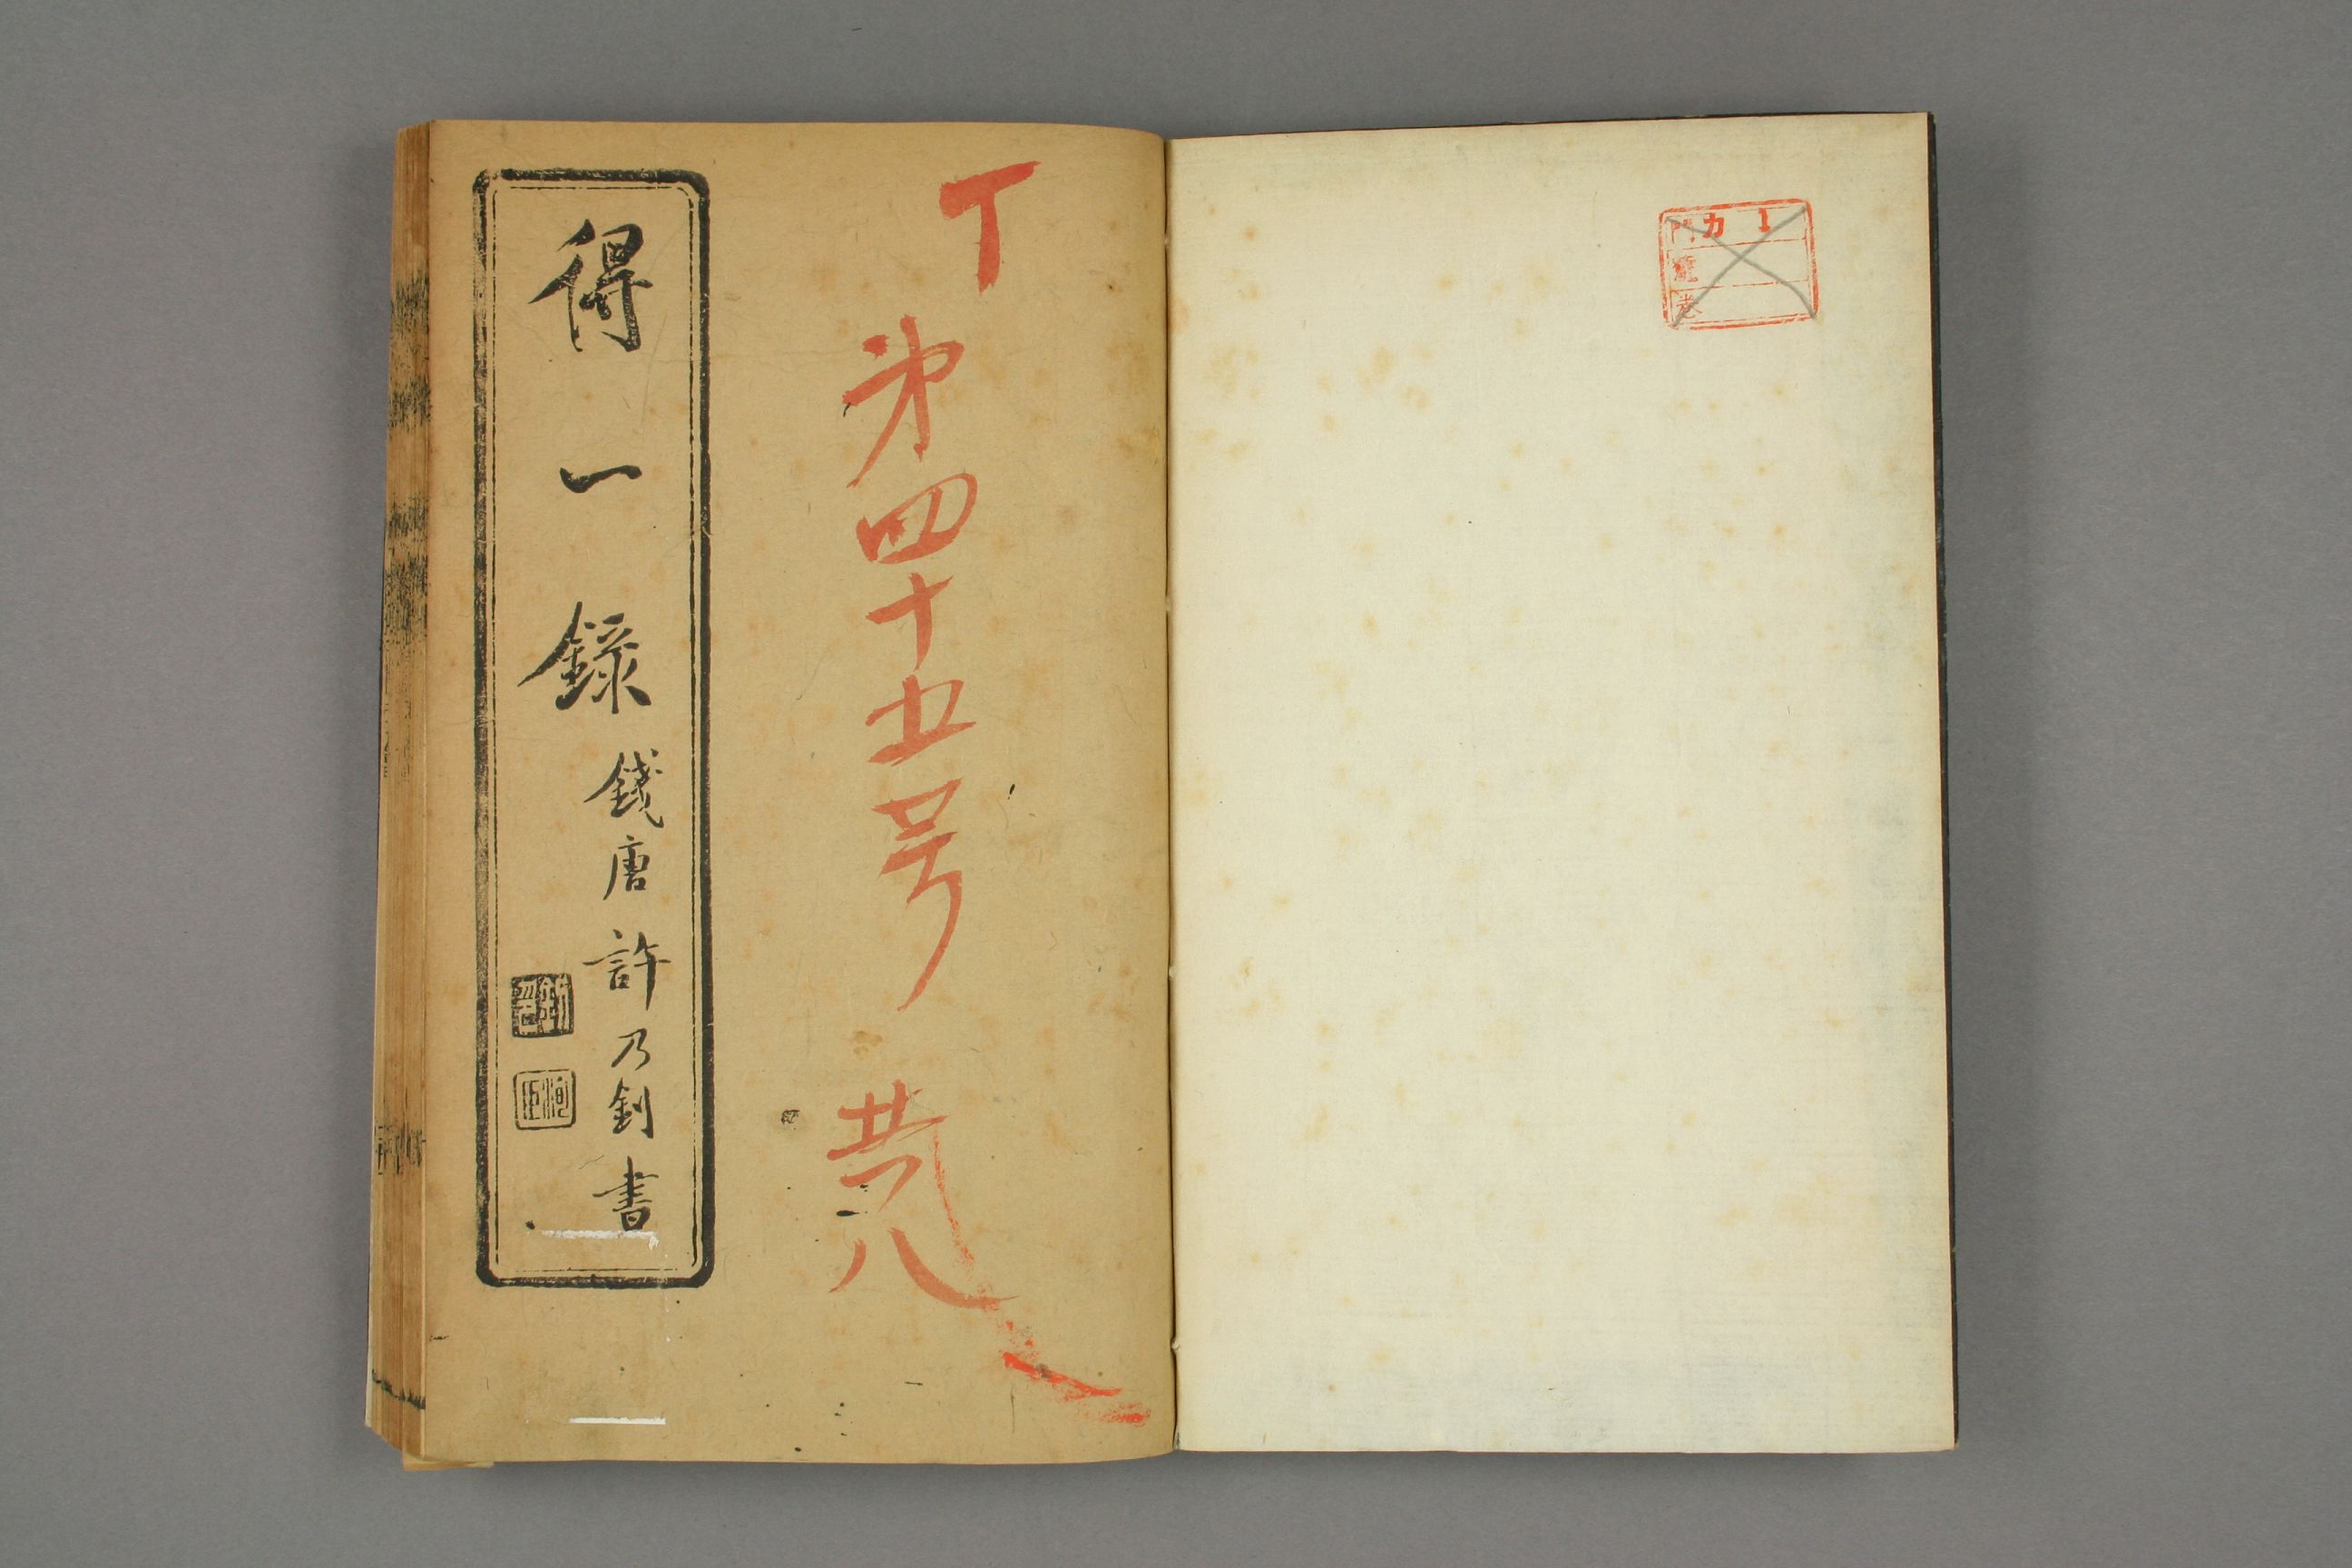 カ 1
門
號
巻
丁
第四十五号
共八
得一錄
錢唐許乃釗書